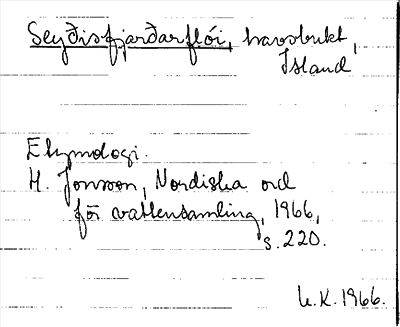 Seyðisfjarðarflói, havsbukt,
Island
Etymologi.
H. Jonsson, Nordiska ord
för vattensamling, 1966,
s. 220.
U.K. 1966.